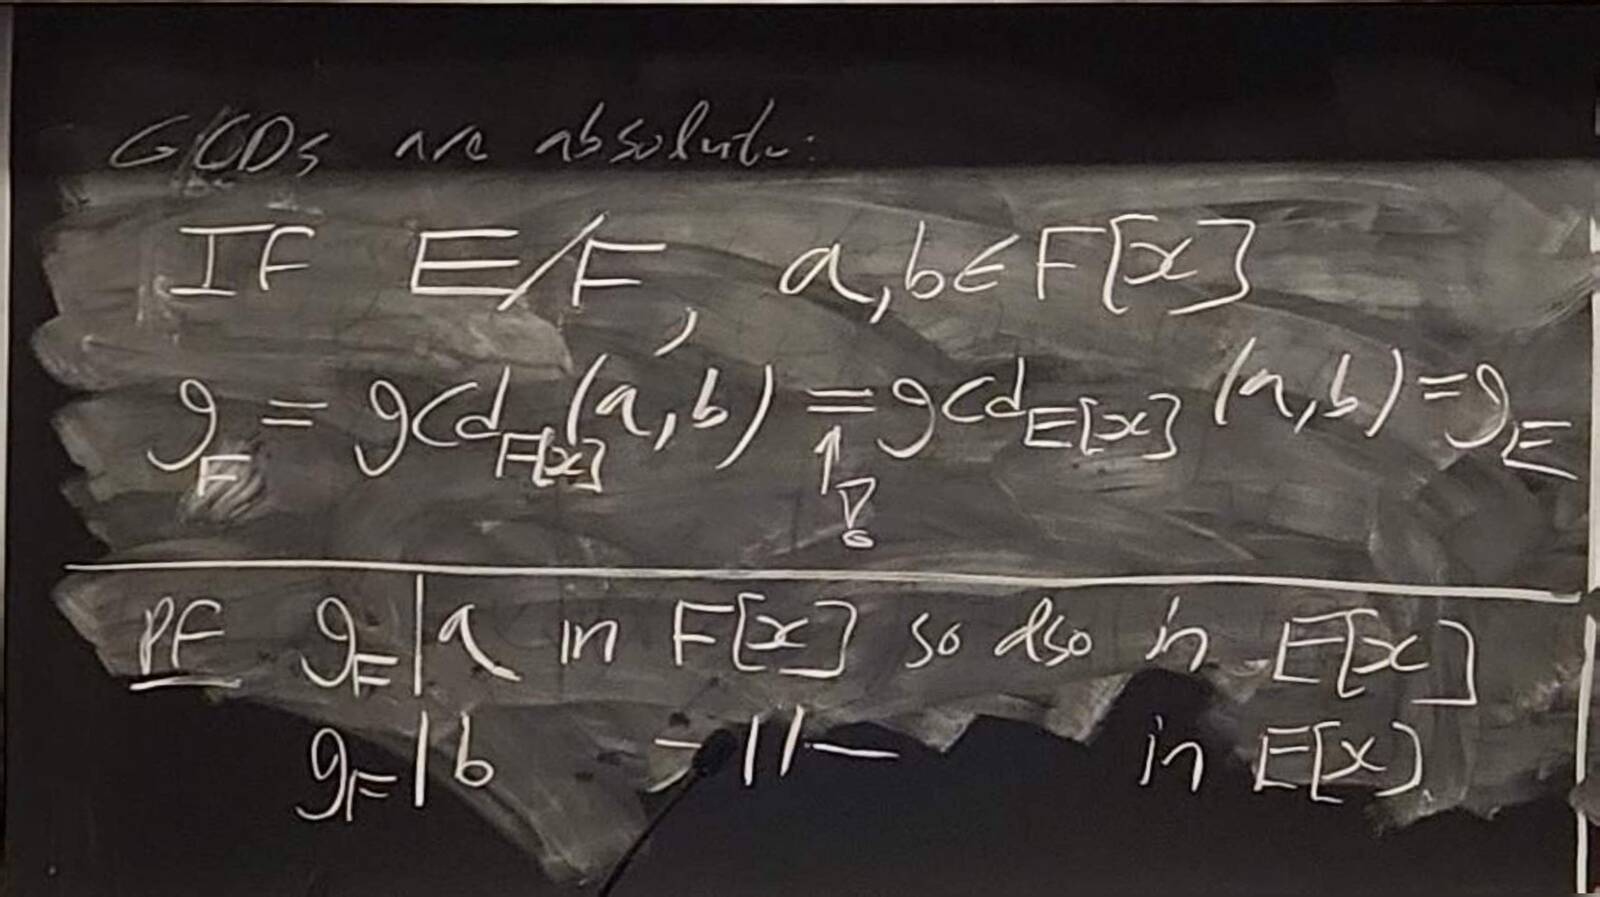 GCDs are absolute:
IF E/F, a,b∈F[x]
g_F = gcd_F[x](a,b) = gcd_E[x](a,b) = g_E
↑
!
PF g_F|a in F[x] so also in E[x]
g_F|b —||— in E[x]